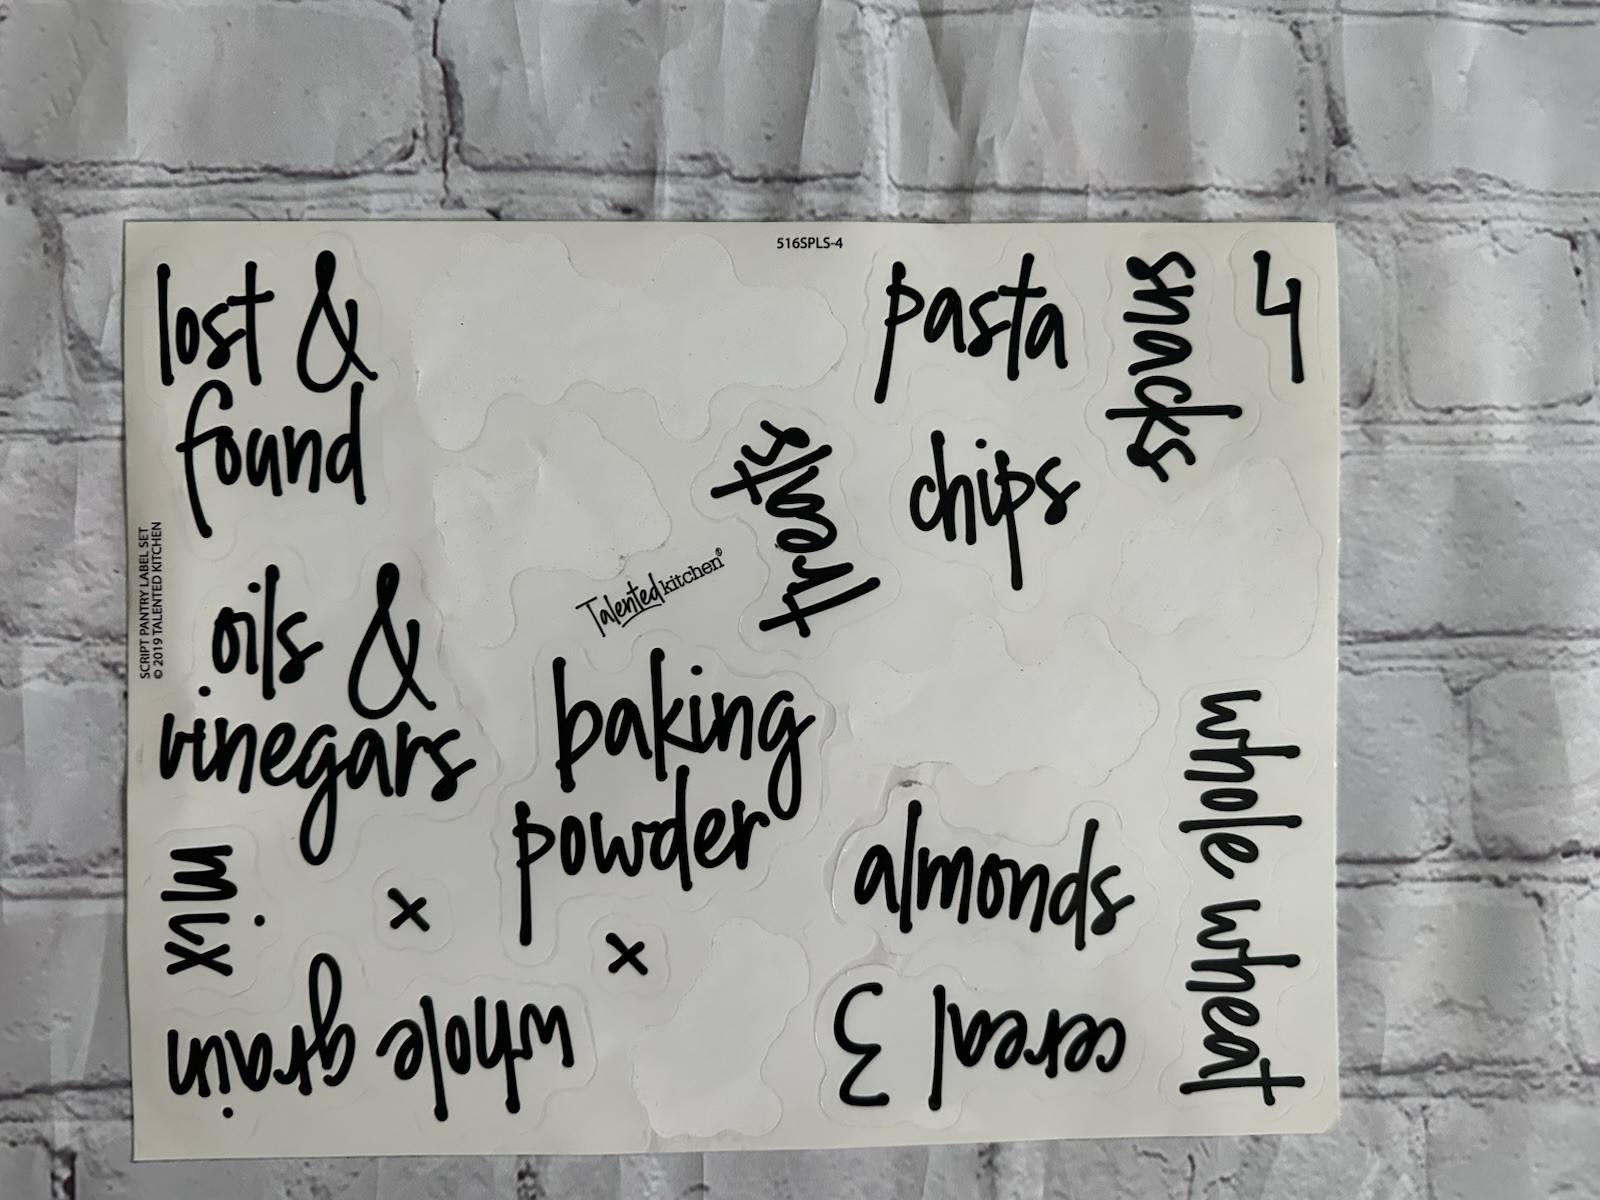 516SPLS-4
lost &
found
pasta
snacks
4
chips
treats
SCRIPT PANTRY LABEL SET
© 2019 TALENTED KITCHEN
Talented kitchen®
oils &
vinegars
baking
powder
whole wheat
almonds
mix
x
x
whole grain
cereal 3